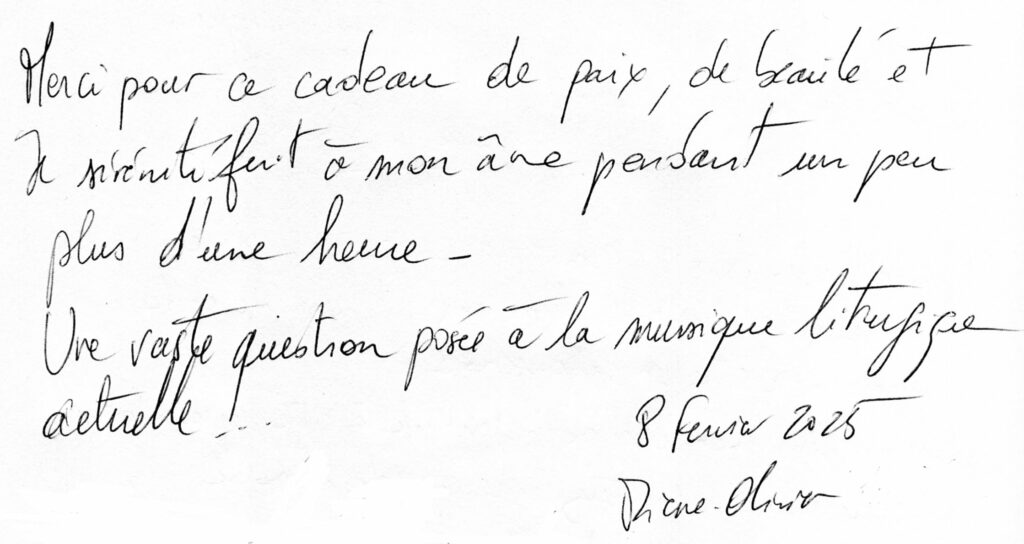 Merci pour ce cadeau de paix, de beauté et
de sérénité fait à mon âme pendant un peu
plus d'une heure -
Une vaste question posée à la musique liturgique
actuelle !...
8 février 2025